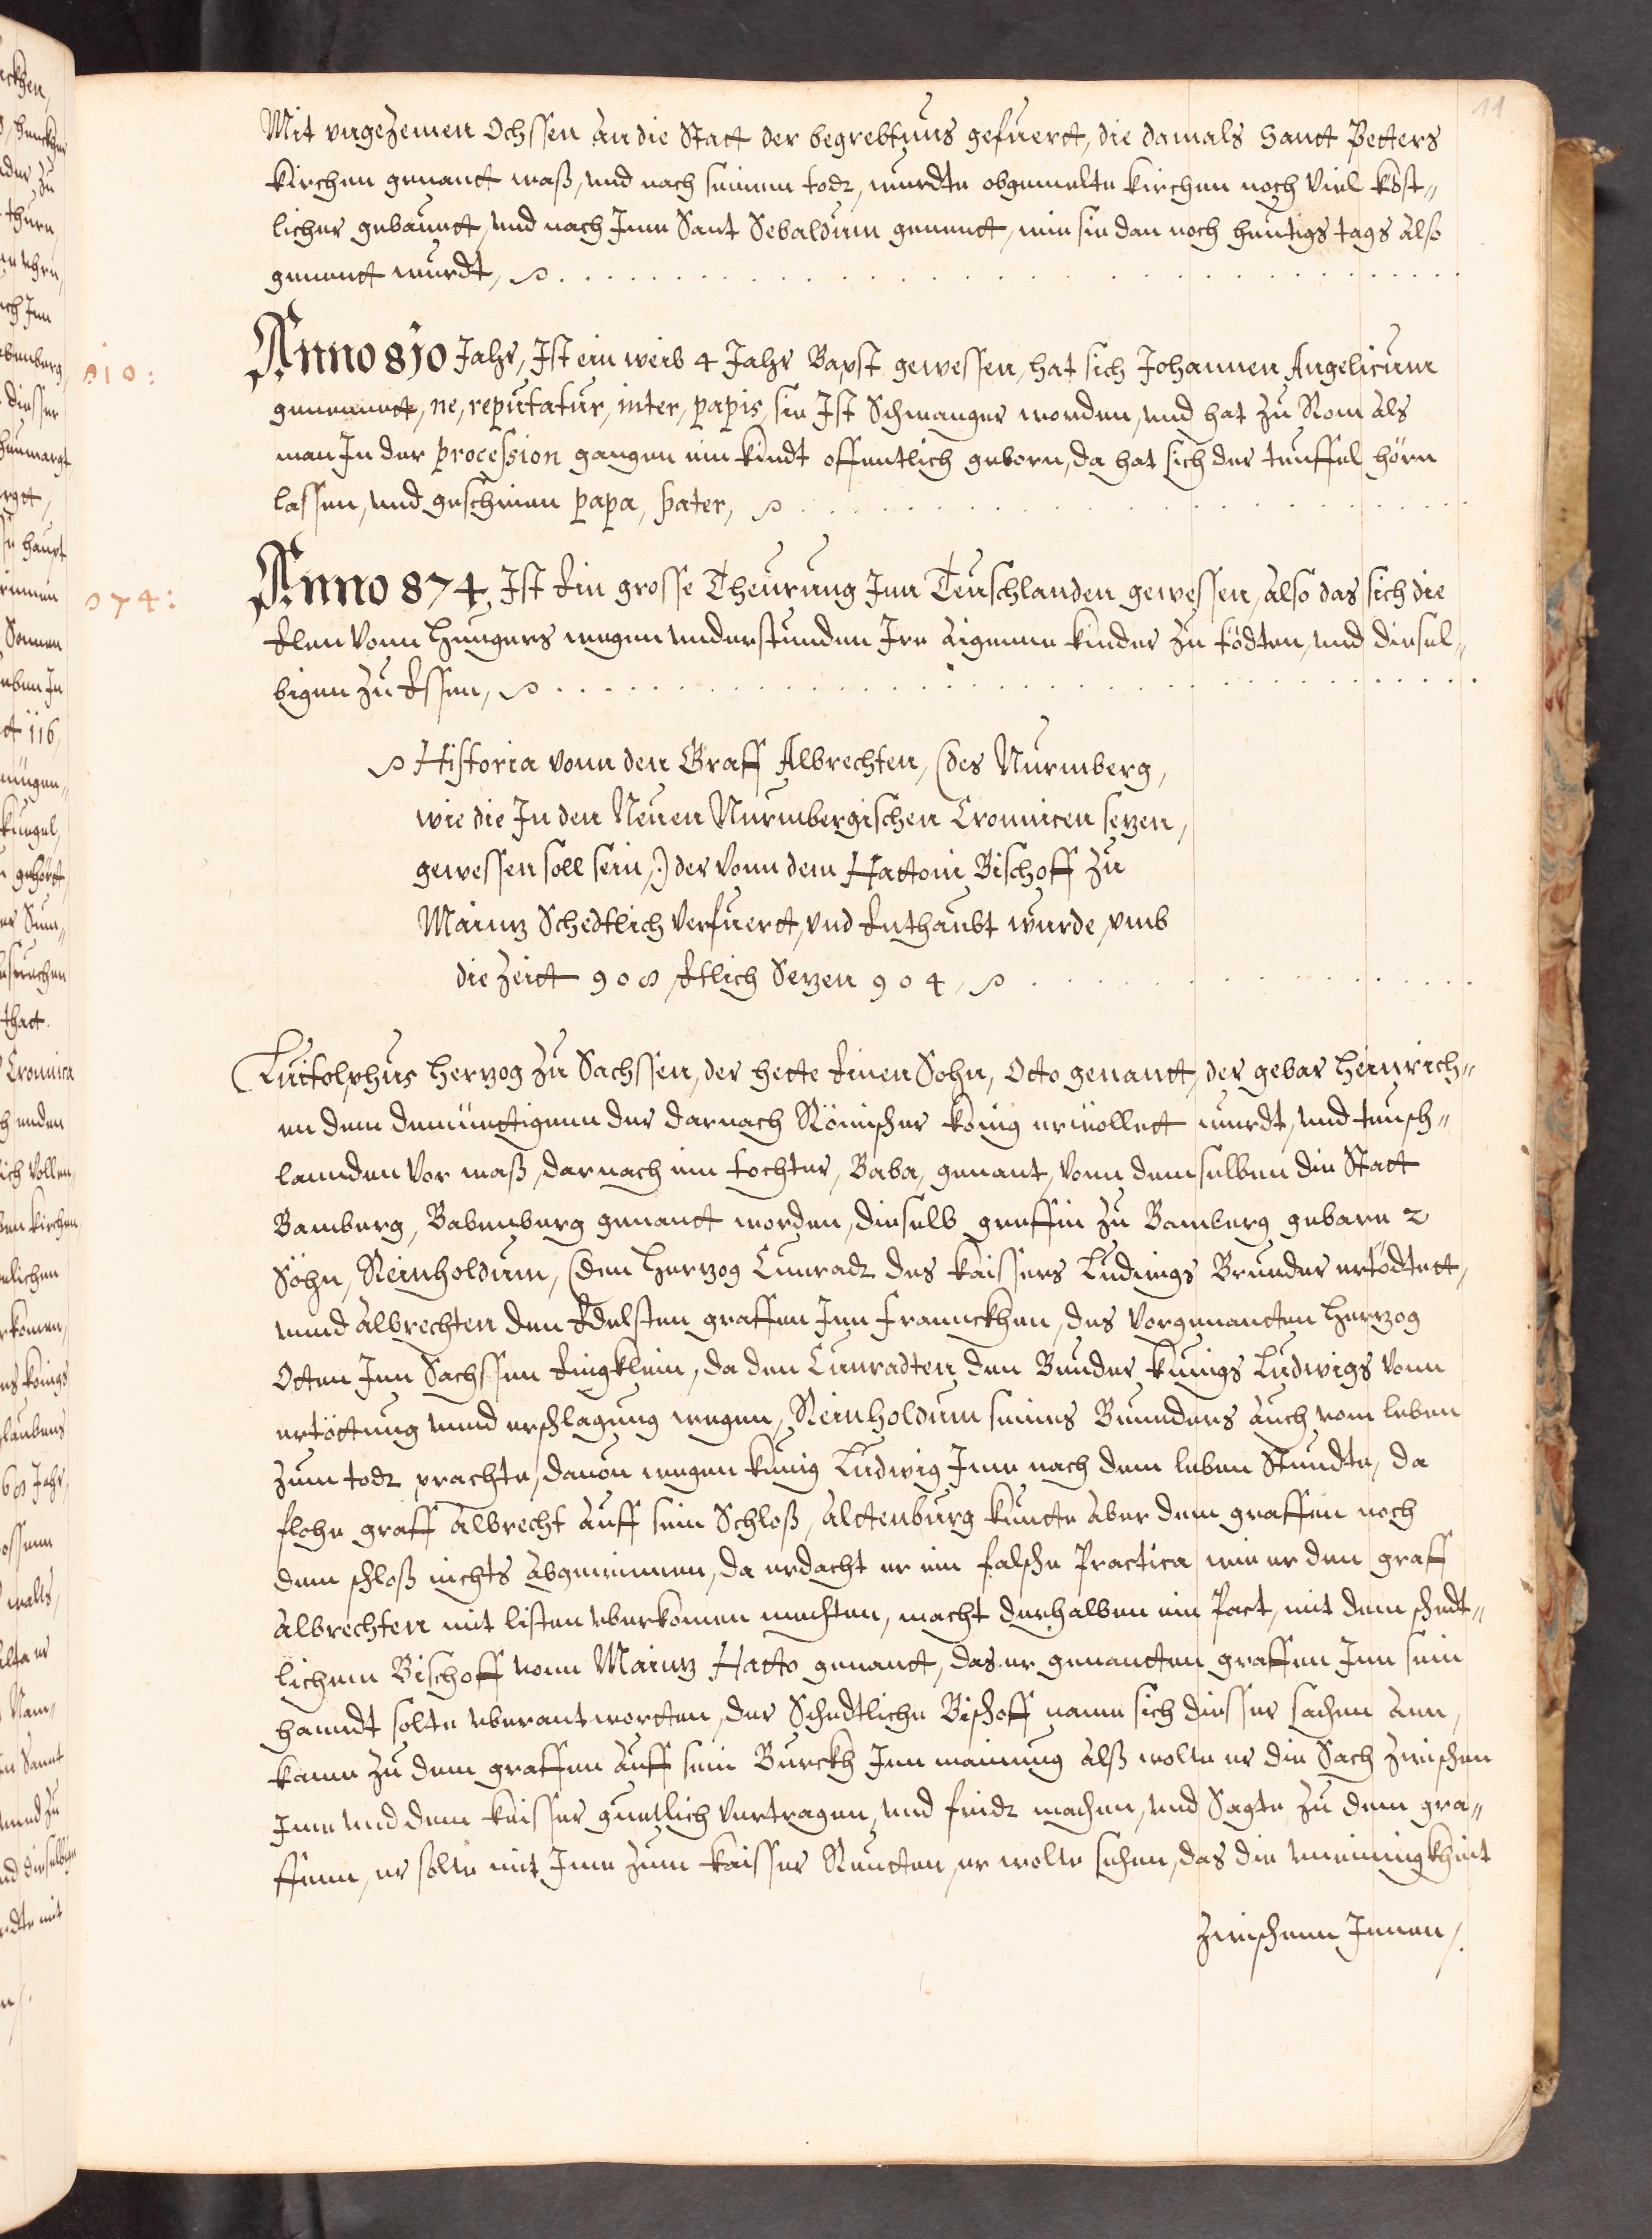 11
Mit vngezemen Ochssen an die Statt der begrebtnus gefuertt, die damals Sanct Petters
kirchen genandt waß, vnd nach seinem todt, wurdte obgemelte kirchen noch viel köst„
licher gebauett, vnd nach Jme Sant Sebaldum genendt, wie sie dan noch heutigs tags also
genandt wurdt,
810:
Anno 810 Jahr, Ist ein weib 4 Jahr Bapst gewessen, hat sich Johannen Angelicum
genennett, ne, reputatur, inter, papis, sie Ist Schwanger worden, vnd hat zu Rom als
man In der procession gangen ein kindt offentlich geborn, da hat sich der teuffel hörn
lassen, vnd geschrieen papa, pater,
874:
Anno 874, Ist Ein grosse Theurung Inn Teuschlanden gewessen, also das sich die
Elen vonn hungers wegen vnderstunden Ire eigenne kinder zu tödten, vnd diesel„
bigen zu Essen,
Historia vonn den Graff Albrechten, (des Nurmberg,
wie die In den Neuen Nurmbergischen Cronnicen sezen,
gewessen soll sein,) der vonn dem Hattoni Bischoff zu
Mainz Schedtlich verfuertt, vnd Enthaubt wurde, vmb
die Zeitt 908 Etlich Sezen 904,
Luitolphus Herzog zu Sachssen, der hette Einen Sohn, Otto genantt, der gebar Heinrich„
en dem demüettigenn der darnach Römischer König erwöllett wurdt, vnd teusch„
lannden vor waß, darnach ein tochter, Baba, genant, vonn demselben die Statt
Bamberg, Babenberg genantt worden, dieselb greffin zu Bamberg gebare 2
Söhn, Reinholdum, (den Herzog Cunradt des kaissers Ludwigs Bruder ertödtett,
vnnd Albrechten den Edelsten graffen Inn Franckhen, des vorgenandten Herzog
Otten Inn Sachssen Eingklein, da den Cunradten den Bruder Kunigs Ludwigs vonn
ertöttung vnnd erschlagung wegen, Reinholdum seines Bruders auch vom leben
zum todt prachte, davon wegen kunig Ludwig Jme nach dem leben Stundte, da
flohe graff Albrecht auff sein Schloß, Alttenburg kuntte aber dem graffen noch
dem schloß nichts abgewinnen, da erdacht er ein falsche Practica wie er den graff
Albrechten mit listen vberkomen mechten, macht derhalben ein Pact, mit dem schedt„
lichem Bischoff vonn Mainz Hatto genantt, das er genantten graffen Inn sein
hanndt solte vberantwortten, der Schedtliche Bischoff name sich diesser sachen ann,
kame zu dem graffen auff sein Burckh Inn mainung alß wolte er die Sach zwischen
Jme vnd dem kaisser guetlich vertragen, vnd fridt machen, vnd Sagte zu dem gra„
ffenn, er solte mit Jme zum kaisser Reutten, er wolte sehen, das die vneinigkheit
zwischenn Jnnen,